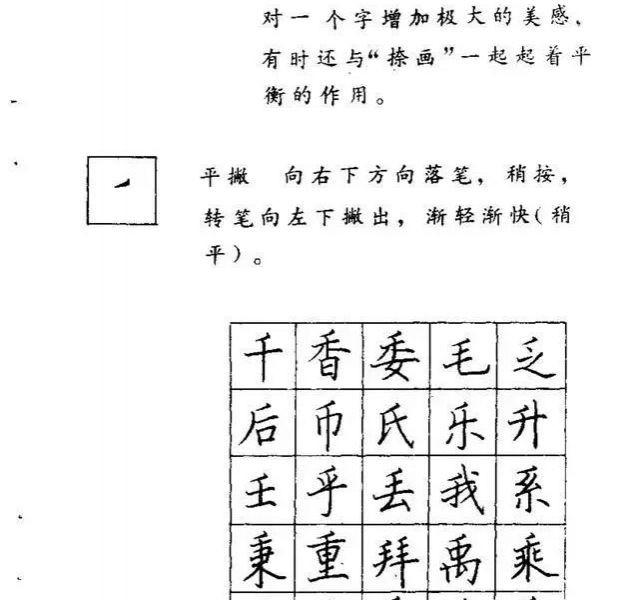 对一个字增加极大的美感，
有时还与“捺画”一起起着平
衡的作用。
平撇　向右下方向落笔，稍按，
转笔向左下撇出，渐轻渐快(稍
平)。
千香委毛乏
后币氏乐升
壬乎丢我系
秉重拜禹乘